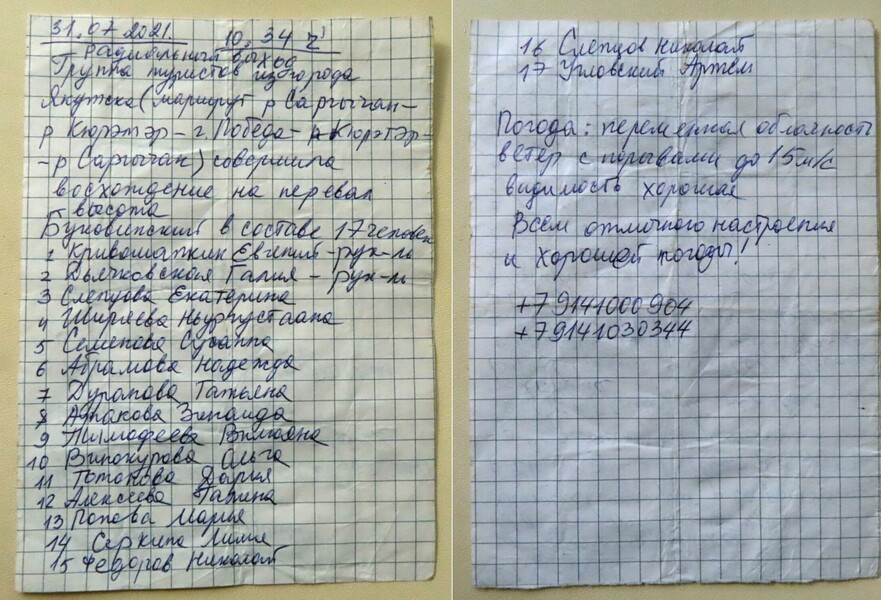 31.07.2021. 10.34 ч
радиальный выход
Группа туристов из города
Якутска (маршрут р Саргычан-
р Кюрэтэр - г. Победа - р Кюрэтэр -
- р Саргычан) совершила
восхождение на перевал
высота
Буковинский в составе 17 человек
1 Кривошапкин Евгений - рук-ль
2 Дьячковская Галия - рук-ль
3 Слепцова Екатерина
4 Ширяева Ньургустаана
5 Семенова Сусанна
6 Абрамова Надежда
7 Дуранова Татьяна
8 Аднакова Зинаида
9 Тимофеева Вилюяна
10 Винокурова Ольга
11 Тотонова Дария
12 Алексеева Галина
13 Попова Мария
14 Серкина Лилия
15 Федоров Николай
16 Слепцов Николай
17 Угловский Артём
Погода: переменная облачность
ветер с порывами до 15 м/с
видимость хорошая
Всем отличного настроения
и хорошей погоды!
+79141000904
+79141030344